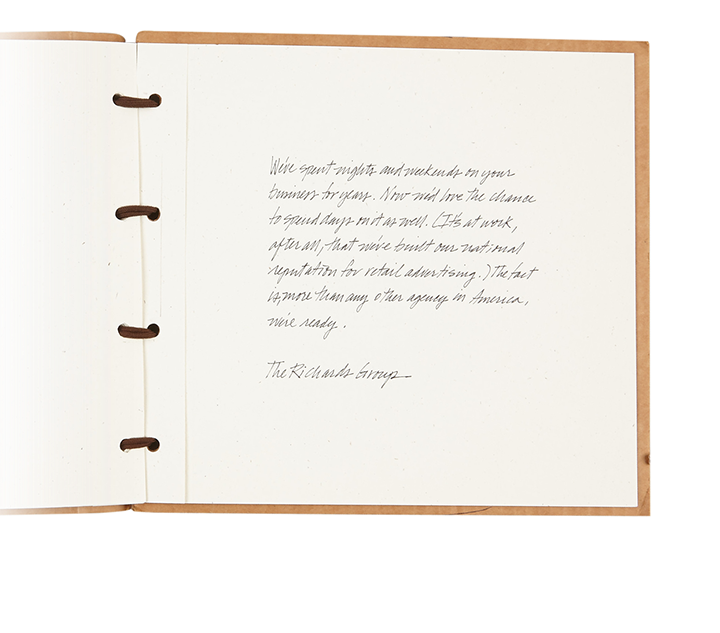 We've spent nights and weekends on your
business for years. Now we'd love the chance
to spend days on it as well. (It's at work,
after all, that we've built our national
reputation for retail advertising.) The fact
is, more than any other agency in America,
we're ready.
The Richards Group